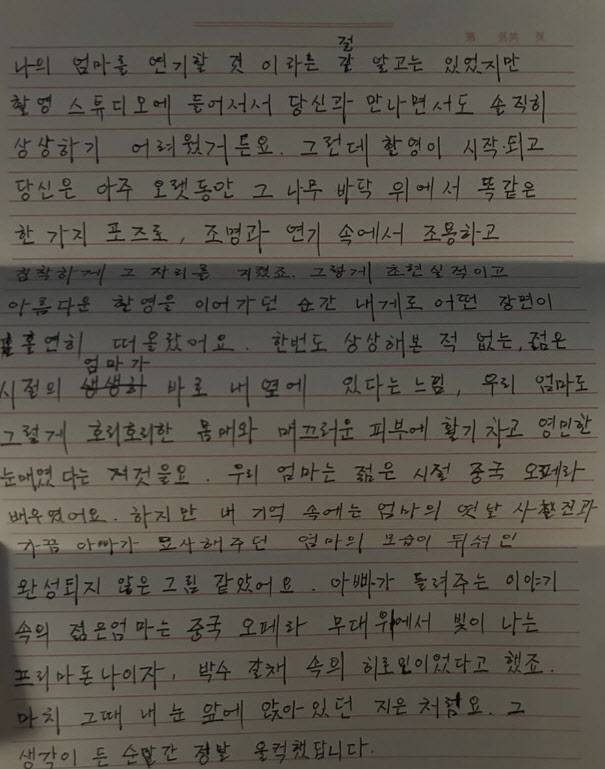 第 页共 页
절
나의 엄마를 연기할 것 이라는 잘 알고는 있었지만
촬영 스튜디오에 들어서서 당신과 만나면서도 솔직히
상상하기 어려웠거든요. 그런데 촬영이 시작되고
당신은 아주 오랫동안 그 나무 바닥 위에서 똑같은
한 가지 포즈로, 조명과 연기 속에서 조용하고
침착하게 그 자리를 지켰죠. 그렇게 초현실적이고
아름다운 촬영을 이어가던 순간 내게로 어떤 장면이
홀연히 떠올랐어요. 한번도 상상해본 적 없는, 젊은
엄마가
시절의 생생하 바로 내 옆에 있다는 느낌, 우리 엄마도
그렇게 호리호리한 몸매와 매끄러운 피부에 활기차고 영민한
눈매였다는 저것을요. 우리 엄마는 젊은 시절 중국 오페라
배우였어요. 하지만 내 기억 속에는 엄마의 옛날 사진과
가끔 아빠가 묘사해주던 엄마의 모습이 뒤섞인
완성되지 않은 그림 같았어요. 아빠가 들려주는 이야기
속의 젊은엄마는 중국 오페라 무대위에서 빛이 나는
프리마돈나이자, 박수 갈채 속의 히로인이었다고 했죠.
마치 그때 내 눈 앞에 앉아있던 지은 처럼요. 그
생각이 든 순간 정말 울컥했답니다.